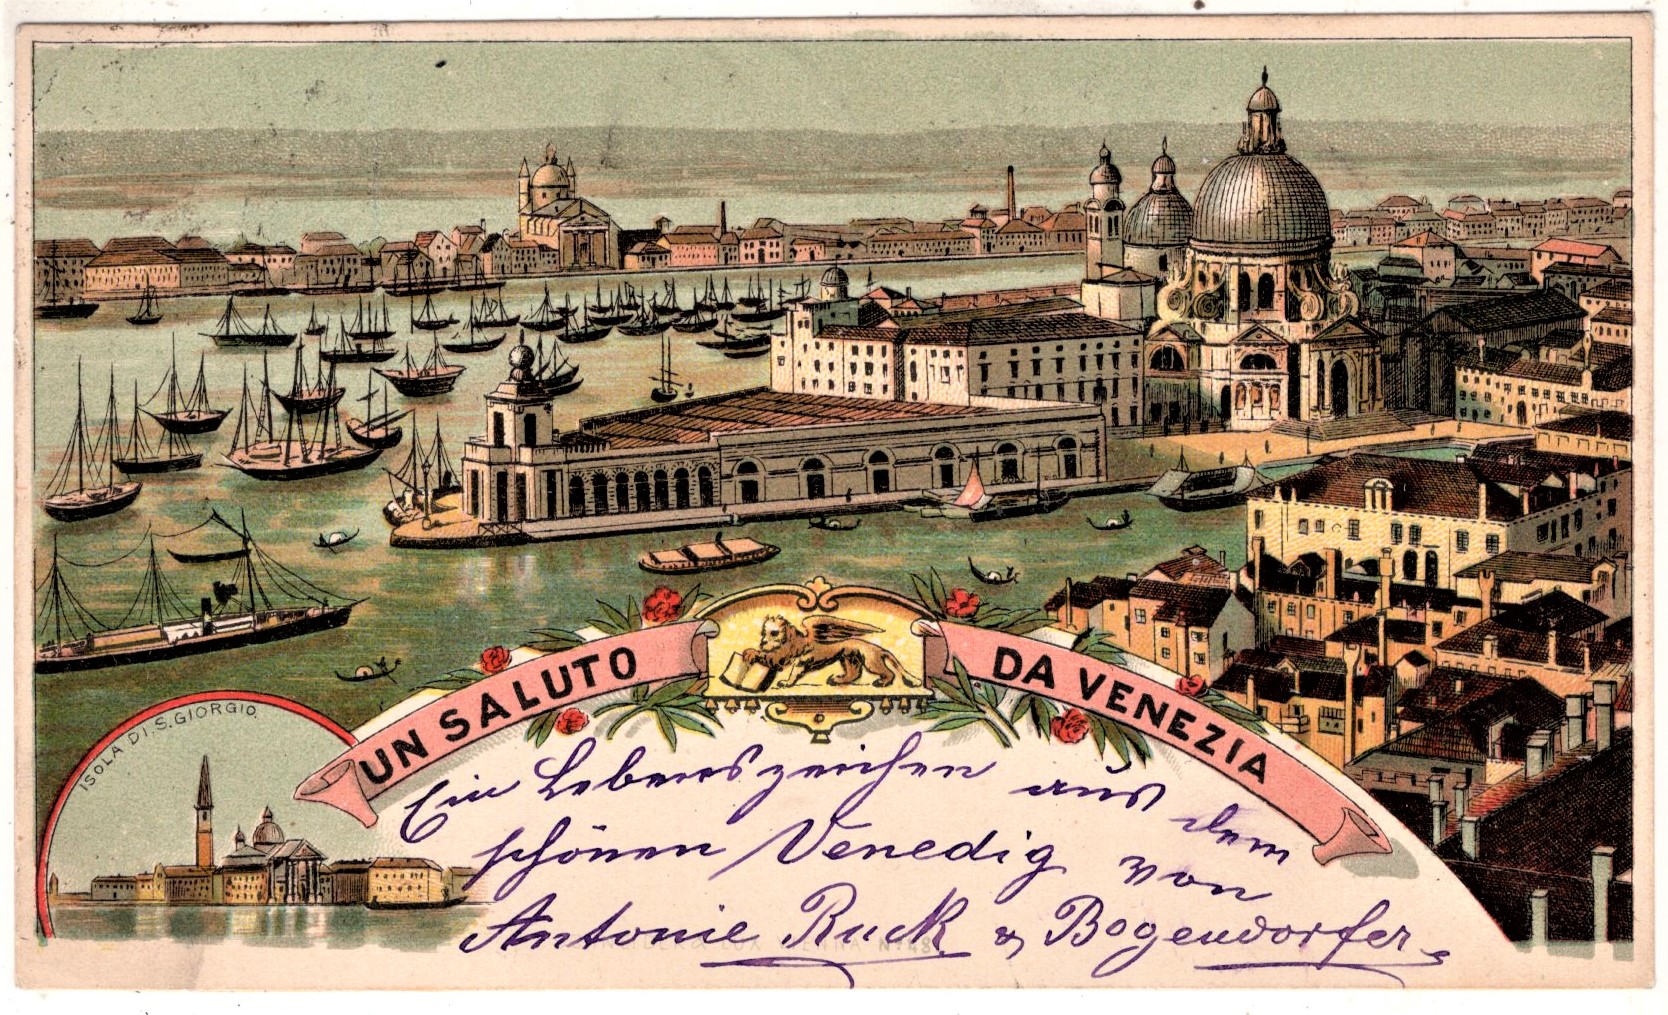 UN SALUTO DA VENEZIA
ISOLA DI S. GIORGIO.
Ein Lebenszeichen aus dem
schönen Venedig von
Antonie Ruck & Bogendorfer